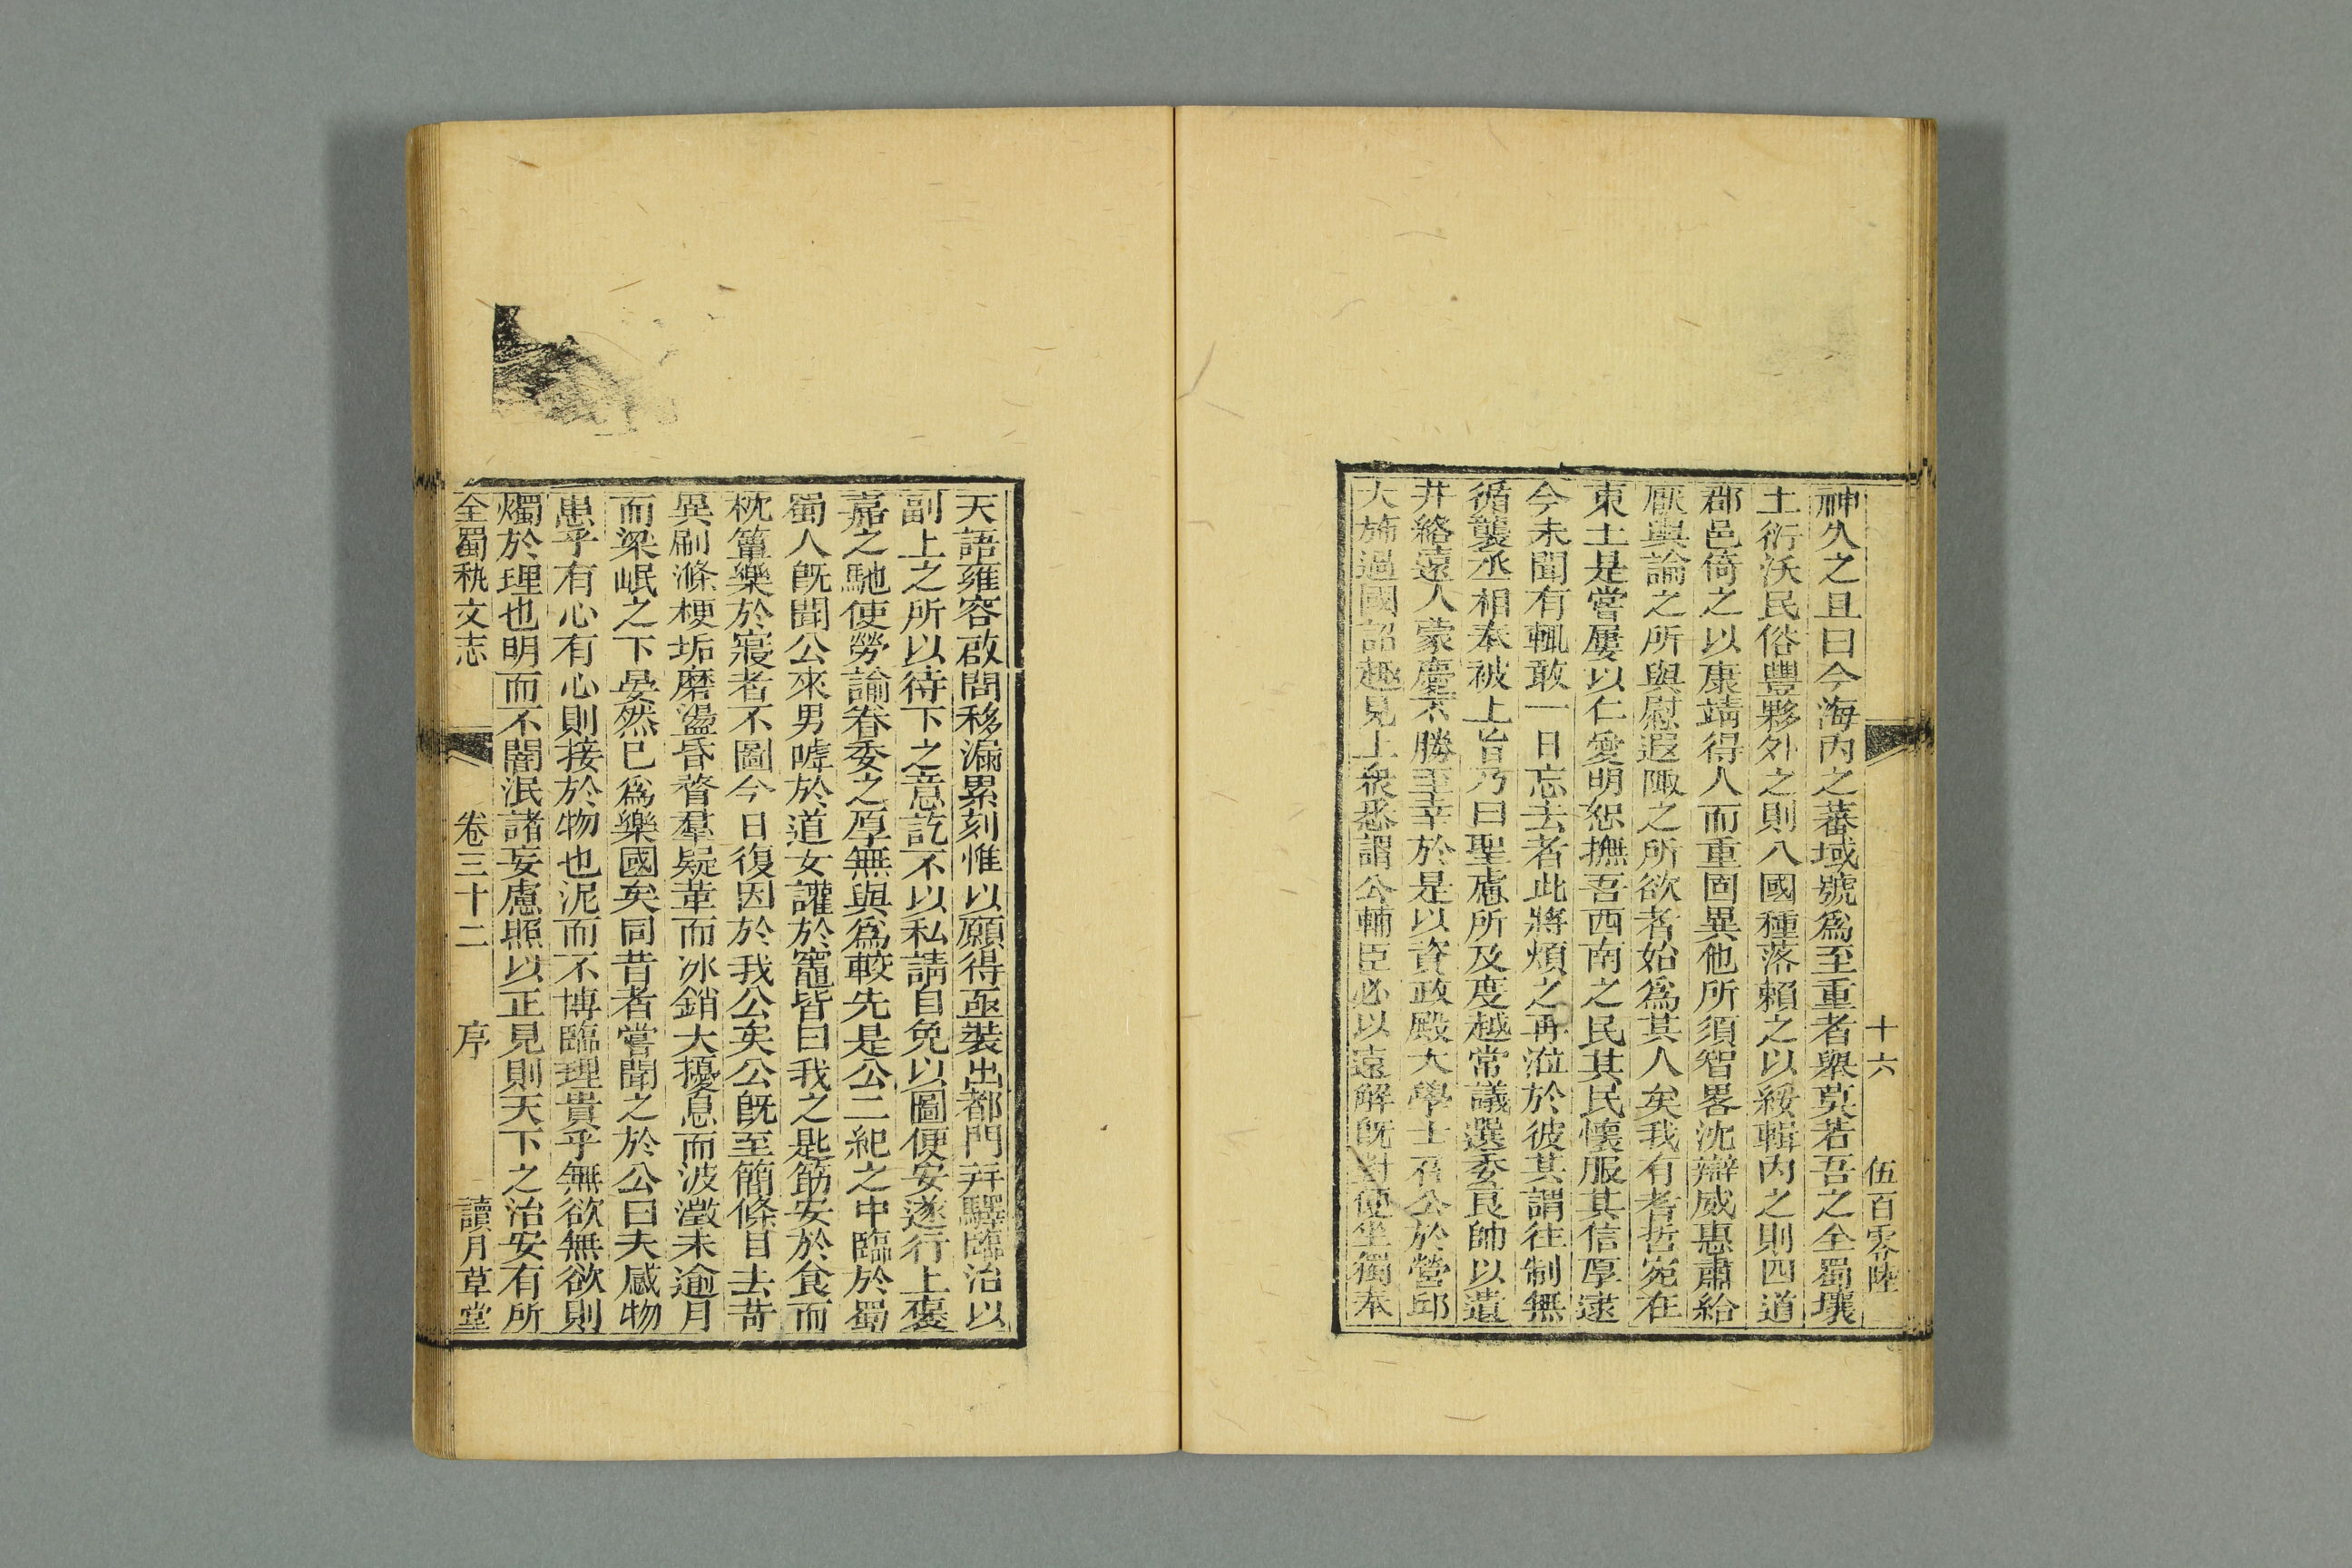 十六　伍百零陸
神久之且曰今海內之蕃域號爲至重者舉莫若吾之全蜀壤
土衍沃民俗豐夥外之則八國種落賴之以綏輯內之則四道
郡邑倚之以康靖得人而重固異他所須智畧沈辯威惠肅給
厭輿論之所與慰遐陬之所欲者始爲其人矣我有耆哲宛在
東土是嘗屢以仁愛明恕撫吾西南之民其民懷服其信厚逮
今未聞有輒敢一日忘去者此將煩之再涖於彼其謂往制無
循襲丞相奉被上旨乃曰聖慮所及度越常議選委良帥以遺
井絡遠人蒙慶不勝至幸於是以資政殿大學士召公於營邱
大旆過國詔趣見上衆悉謂公輔臣必以遠解旣對便坐獨奉
天語雍容啟問移漏累刻惟以願得亟裝出都門弁驛臨治以
副上之所以待下之意訖不以私請自免以圖便安遂行上褒
嘉之馳使勞諭眷委之厚無與爲較先是公二紀之中臨於蜀
蜀人旣聞公來男嘑於道女讙於竈皆曰我之匙筯安於食而
枕簟樂於寢者不圖今日復因於我公矣公旣至簡條目去苛
異刷滌梗垢磨盪昏瞀羣疑革而冰銷大擾息而波澂未逾月
而梁岷之下晏然已爲樂國矣同昔者嘗聞之於公曰夫感物
患乎有心有心則接於物也泥而不博臨理貴乎無欲無欲則
燭於理也明而不闇泯諸妄慮照以正見則天下之治安有所
全蜀秇文志　卷三十二　序　讀月草堂